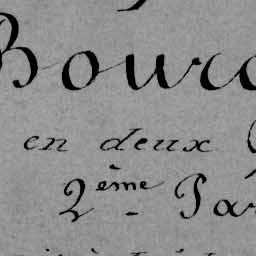 Bourg
en deux
2ème Par